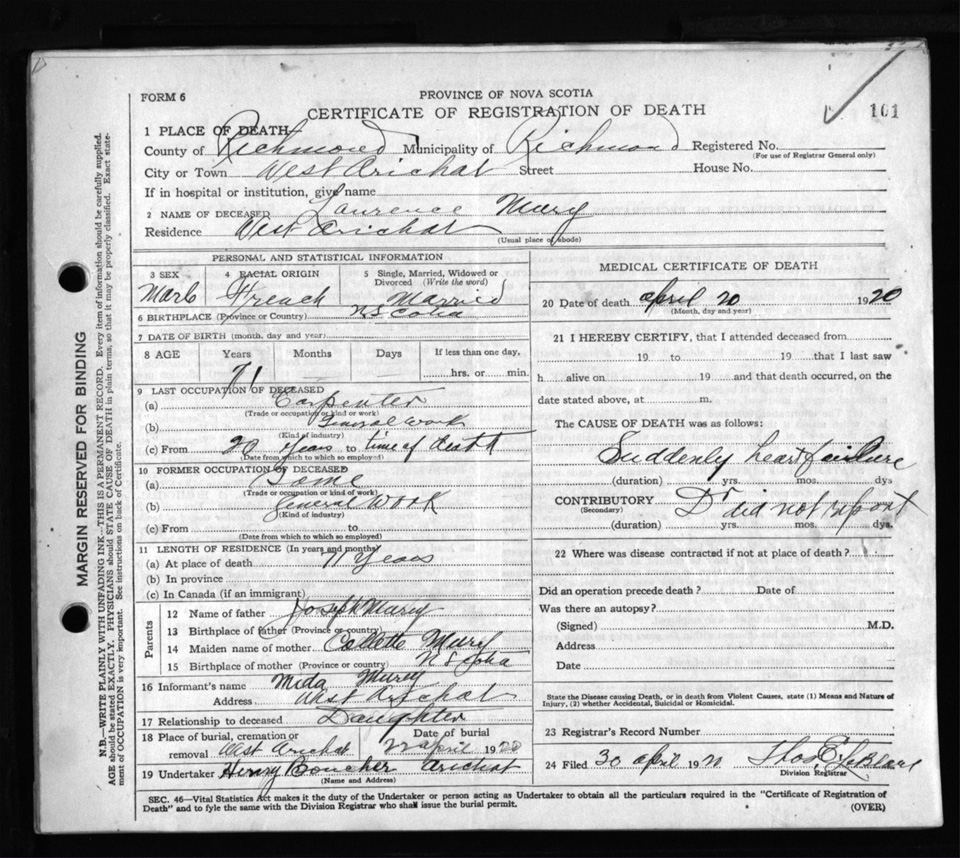 FORM 6
PROVINCE OF NOVA SCOTIA
CERTIFICATE OF REGISTRATION OF DEATH
101
1 PLACE OF DEATH—
County of Richmond Municipality of Richmond Registered No.
(For use of Registrar General only)
City or Town West Arichat Street House No.
If in hospital or institution, give name
2 NAME OF DECEASED Laurence Mury
Residence West Arichat
(Usual place of abode)
PERSONAL AND STATISTICAL INFORMATION
3 SEX
4 RACIAL ORIGIN
5 Single, Married, Widowed or Divorced (Write the word)
French Married
6 BIRTHPLACE (Province or Country) N S Cotia
7 DATE OF BIRTH (month, day and year)
8 AGE Years Months Days If less than one day,
71 hrs. or min.
9 LAST OCCUPATION OF DECEASED
(a) Carpenter
(Trade or occupation or kind of work)
(b) General work
(Kind of industry)
(c) From 20 years to time of death
(Date from which to which so employed)
10 FORMER OCCUPATION OF DECEASED
(a) Same
(Trade or occupation or kind of work)
(b) General Work
(Kind of industry)
(c) From to
(Date from which to which so employed)
11 LENGTH OF RESIDENCE (In years and months)
(a) At place of death 71 years
(b) In province
(c) In Canada (if an immigrant)
Parents
12 Name of father Joseph Mury
13 Birthplace of father (Province or country)
14 Maiden name of mother Collette Mury
15 Birthplace of mother (Province or country) N S Cotia
16 Informant's name Mida Mury
Address West Arichat
17 Relationship to deceased Daughter
18 Place of burial, cremation or removal West Arichat
Date of burial
22 April 1920
19 Undertaker Henry Boucher Arichat
(Name and Address)
MEDICAL CERTIFICATE OF DEATH
20 Date of death April 20 1920
(Month, day and year)
21 I HEREBY CERTIFY, that I attended deceased from
19 to 19 that I last saw
h alive on 19 and that death occurred, on the
date stated above, at m.
The CAUSE OF DEATH was as follows:
Suddenly heart failure
(duration) yrs. mos. dys
CONTRIBUTORY Dr did not report
(Secondary)
(duration) yrs. mos. dys.
22 Where was disease contracted if not at place of death?
Did an operation precede death? Date of
Was there an autopsy?
(Signed) M.D.
Address
Date
State the Disease causing Death, or in death from Violent Causes, state (1) Means and Nature of
Injury, (2) whether Accidental, Suicidal or Homicidal.
23 Registrar's Record Number
24 Filed 30 April 192
Division Registrar
SEC. 46—Vital Statistics Act makes it the duty of the Undertaker or person acting as Undertaker to obtain all the particulars required in the "Certificate of Registration of
Death" and to fyle the same with the Division Registrar who shall issue the burial permit.
(OVER)
MARGIN RESERVED FOR BINDING
N.B.—WRITE PLAINLY WITH UNFADING INK—THIS IS A PERMANENT RECORD. Every item of information should be carefully supplied.
AGE should be stated EXACTLY. PHYSICIANS should STATE CAUSE OF DEATH in plain terms, so that it may be properly classified. Exact state-
ment of OCCUPATION is very important. See instructions on back of Certificate.